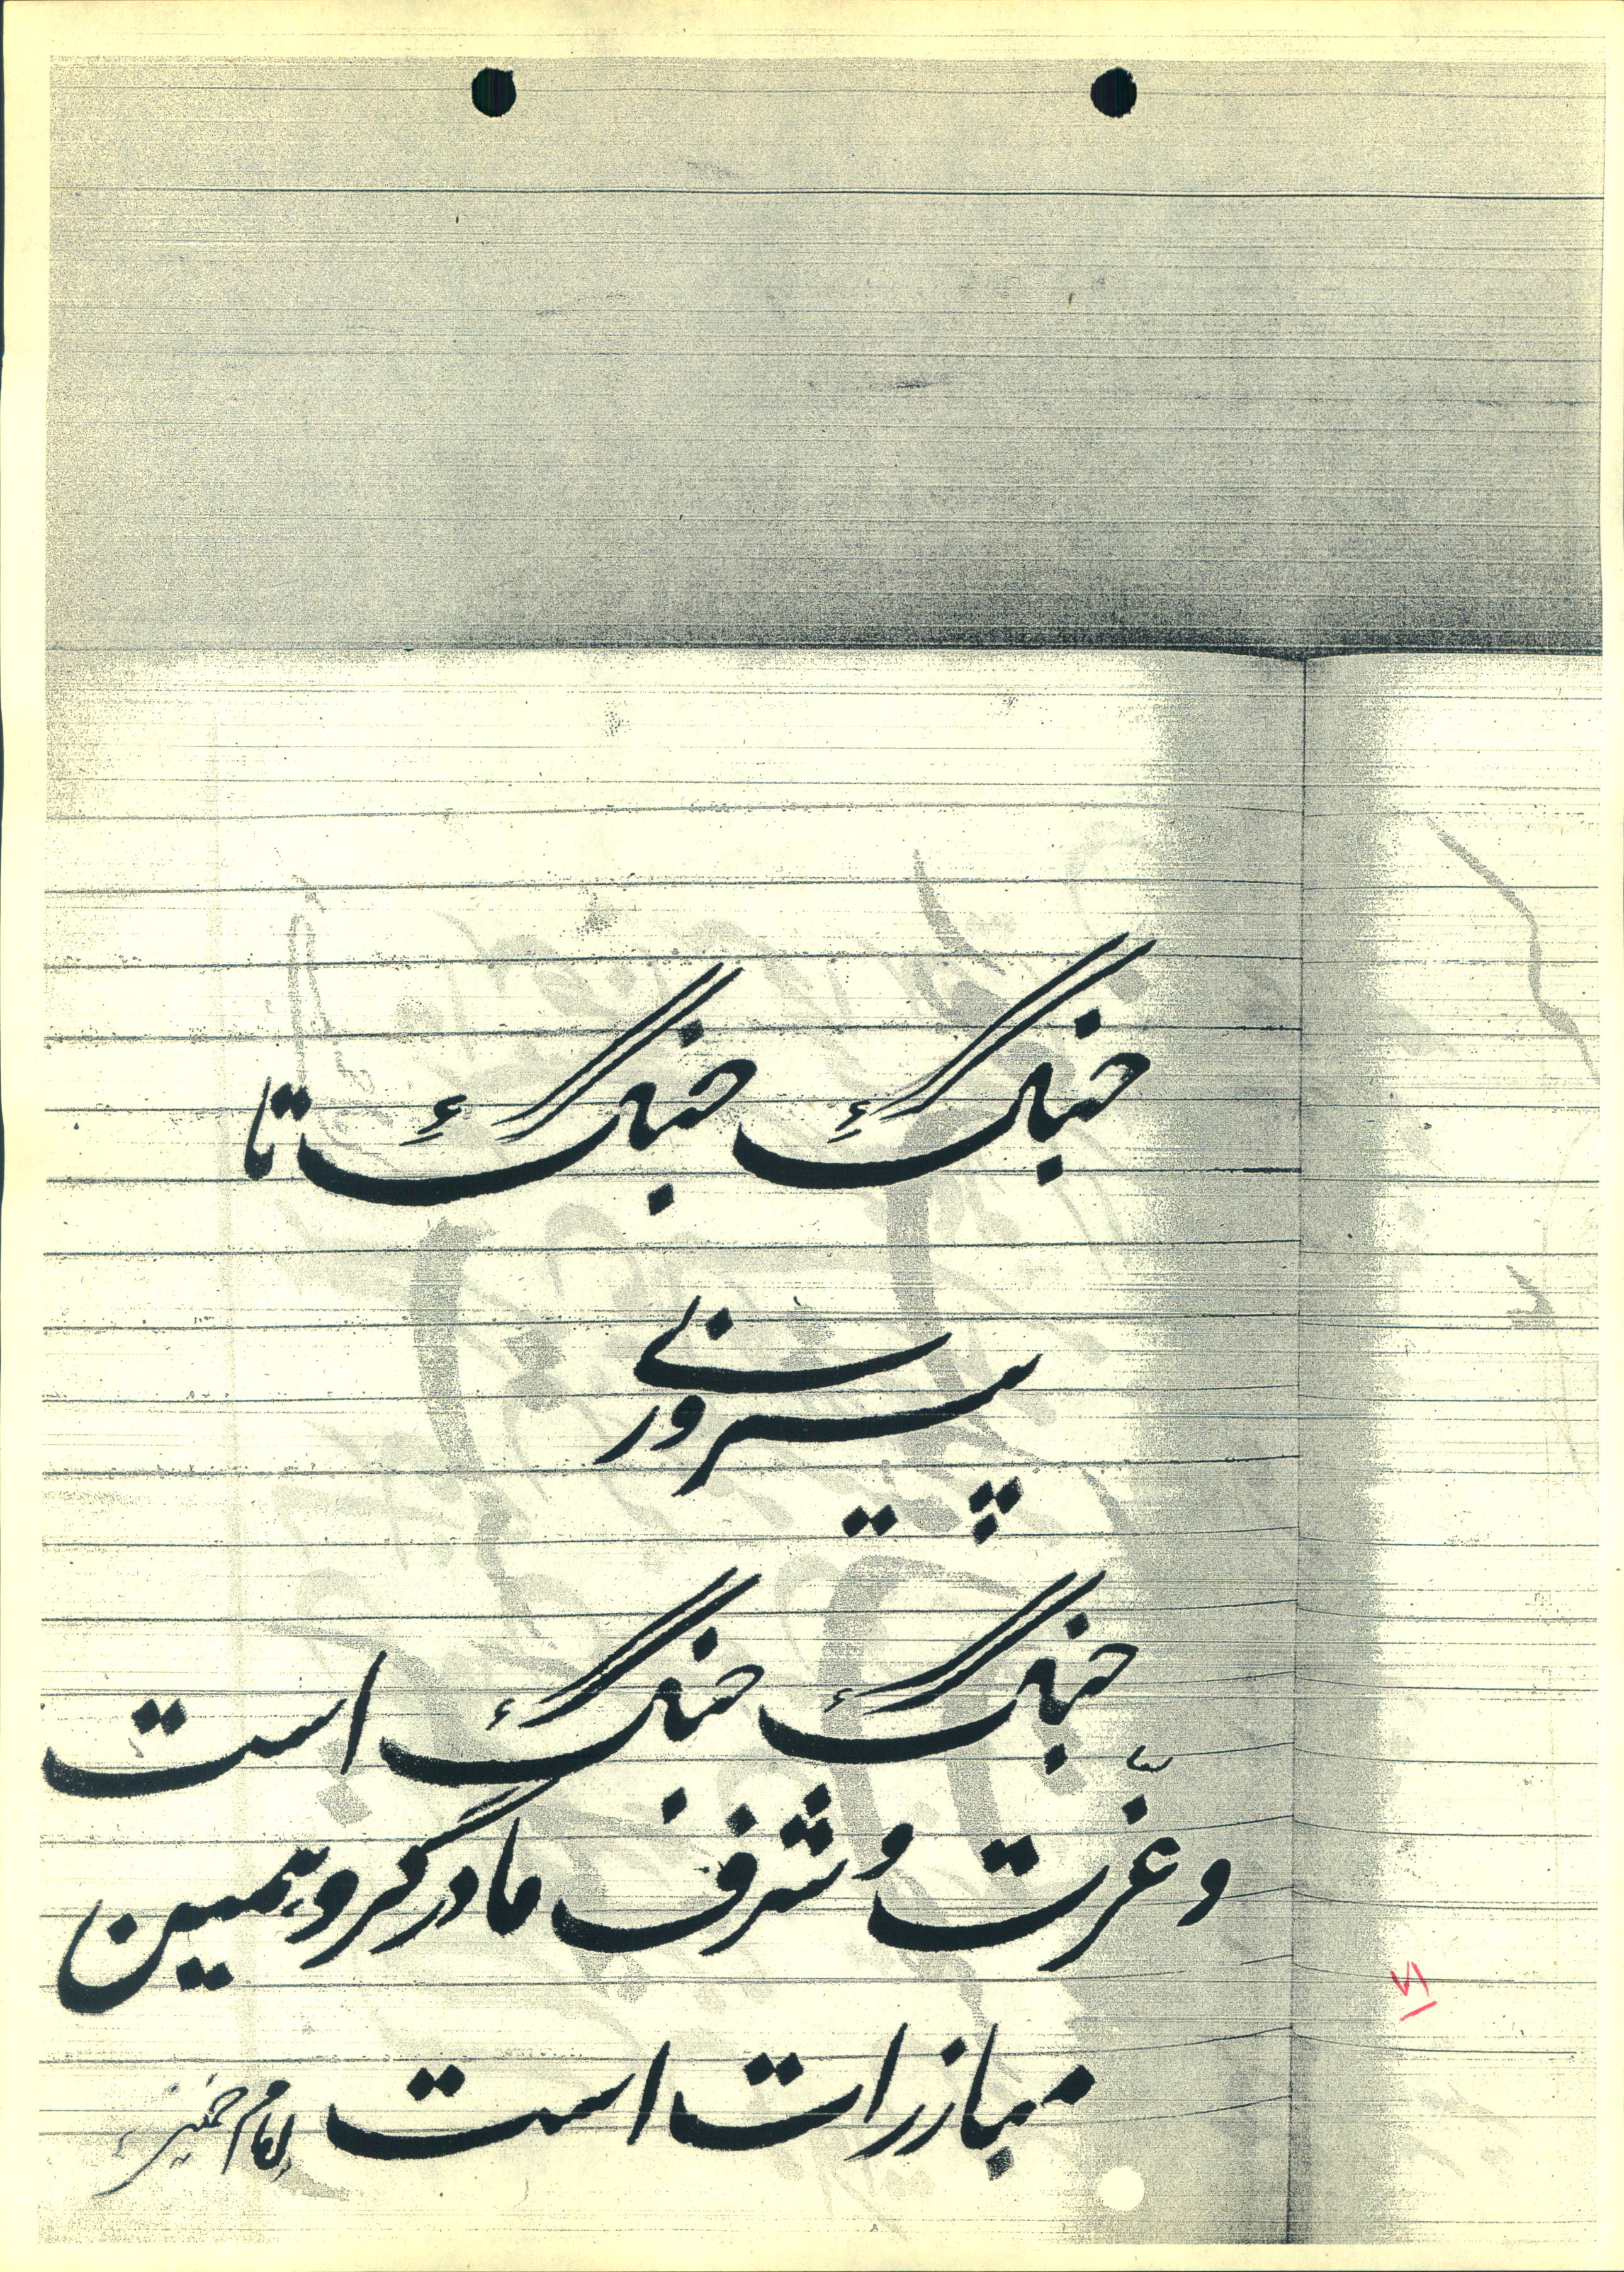 جنگ جنگ تا
پیروزی
جنگ جنگ است
و عزّت و شرف ما در گرو همین
مبارزات است امام خمینی
۷۱